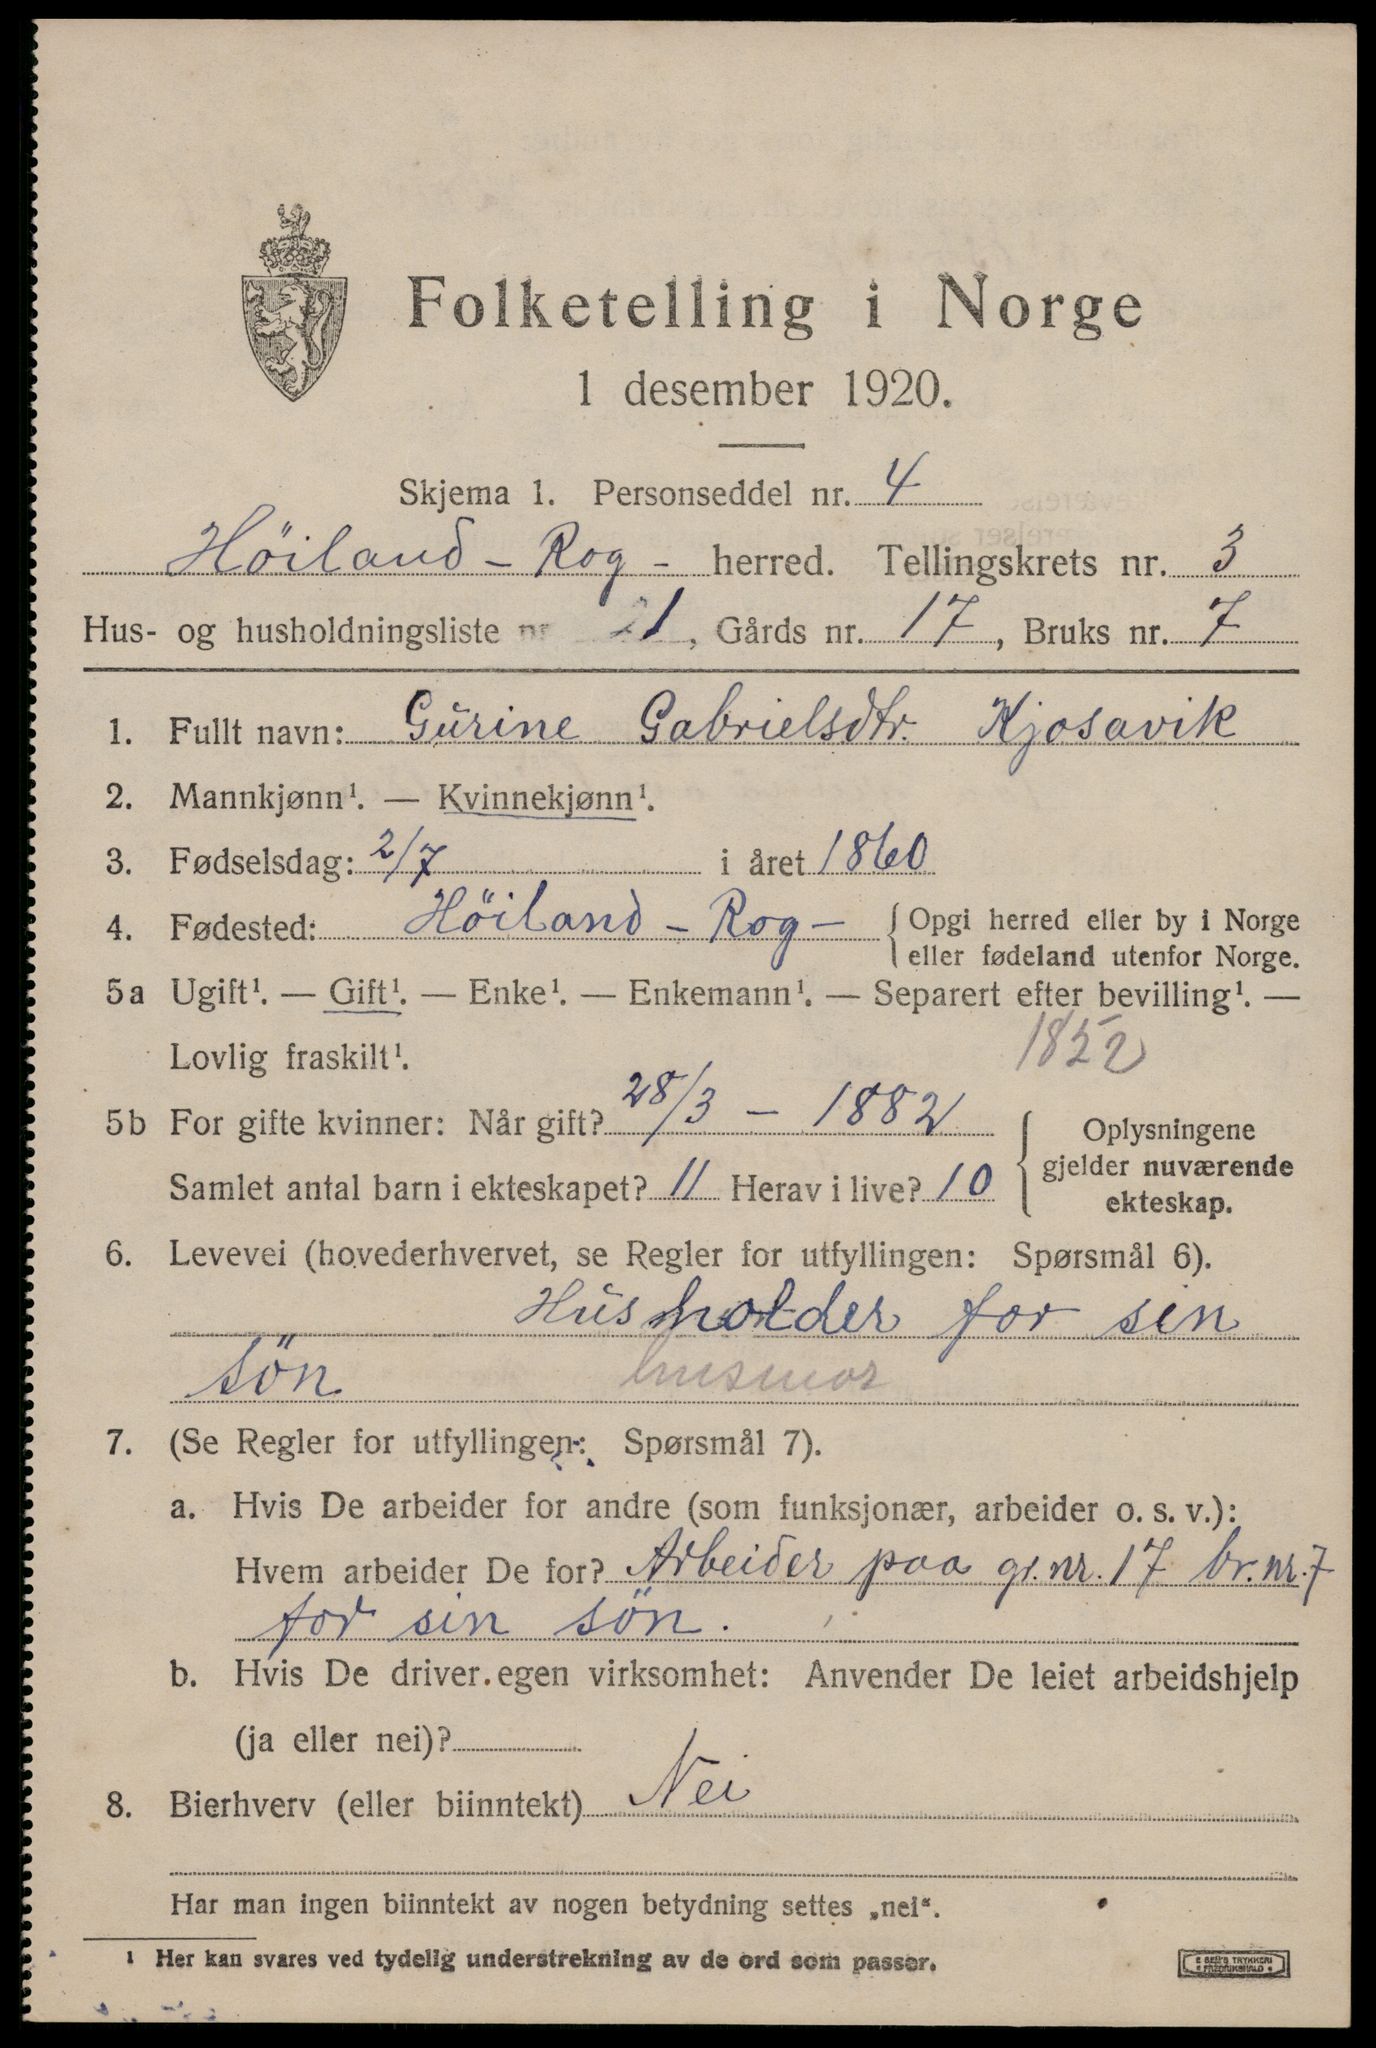 Folketelling i Norge
1 desember 1920.
Skjema 1. Personseddel nr. 4
Höiland - Rog - herred. Tellingskrets nr. 3
Hus- og husholdningsliste nr 21, Gårds nr. 17, Bruks nr. 7
1. Fullt navn: Gürine Gabrielsdtr. Kjosavik
2. Mannkjønn¹. — Kvinnekjønn¹.
3. Fødselsdag: 2/7 i året 1860
4. Fødested: Höiland - Rog - { Opgi herred eller by i Norge
eller fødeland utenfor Norge.
5a Ugift¹. — Gift¹. — Enke¹. — Enkemann¹. — Separert efter bevilling¹. —
Lovlig fraskilt¹. 1852
5b For gifte kvinner: Når gift? 28/3 - 1882
Samlet antal barn i ekteskapet? 11 Herav i live? 10
{ Oplysningene
gjelder nuværende
ekteskap.
6. Levevei (hovederhvervet, se Regler for utfyllingen: Spørsmål 6).
Hüsholder for sin
sön husmor
7. (Se Regler for utfyllingen: Spørsmål 7).
a. Hvis De arbeider for andre (som funksjonær, arbeider o. s. v.):
Hvem arbeider De for? Arbeider paa gr. nr. 17 br. nr. 7
for sin sön.
b. Hvis De driver egen virksomhet: Anvender De leiet arbeidshjelp
(ja eller nei)?
8. Bierhverv (eller biinntekt) Nei
Har man ingen biinntekt av nogen betydning settes „nei“.
¹ Her kan svares ved tydelig understrekning av de ord som passer.
SEM'S TRYKKERI
FREDRIKSHALD